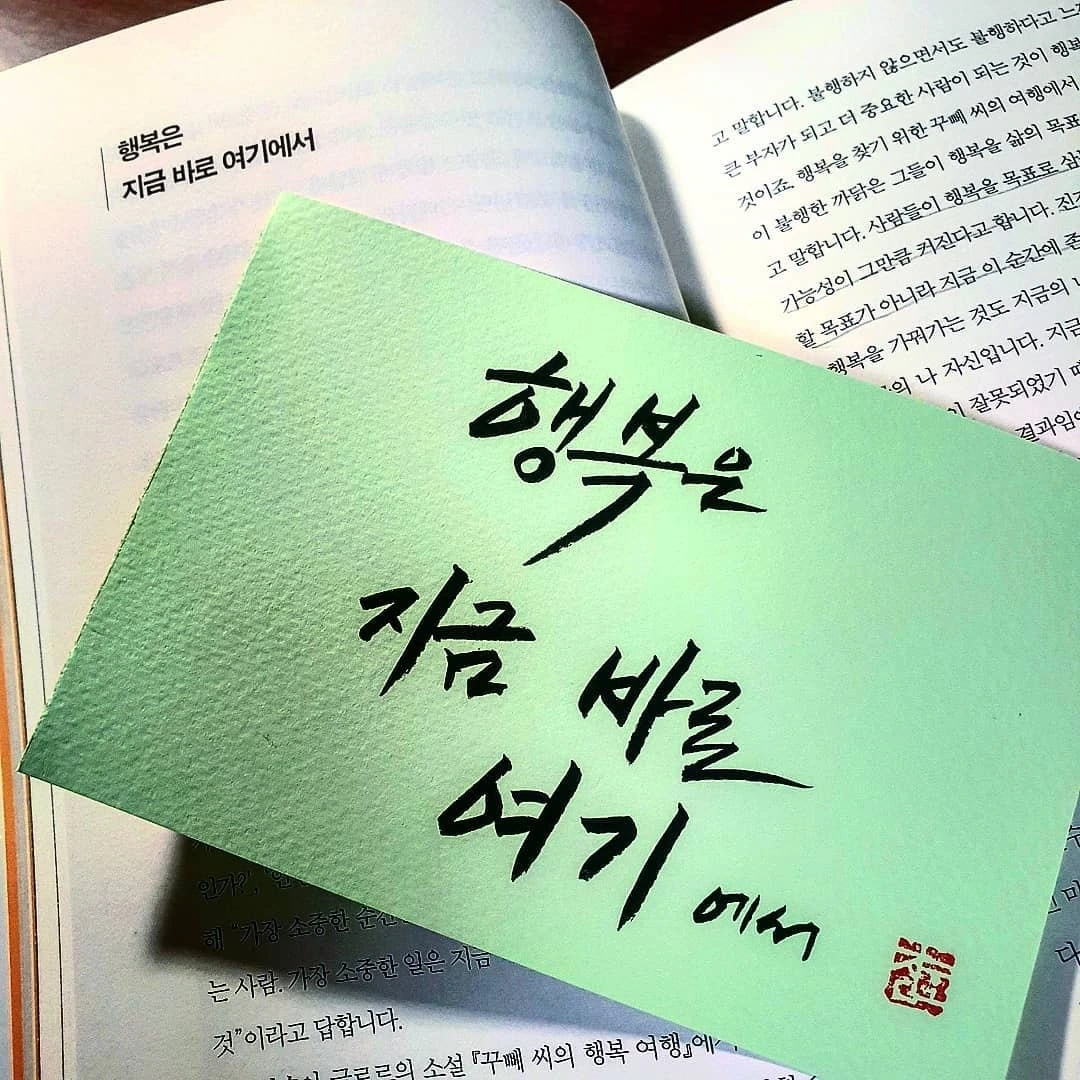 행복은
지금 바로 여기에서
고 말합니다. 불행하지 않으면서도 불행하다고
큰 부자가 되고 더 중요한 사람이 되는 것이
것이죠. 행복을 찾기 위한 꾸뻬 씨의 여행에서
이 불행한 까닭은 그들이 행복을 삶의 목표
고 말합니다. 사람들이 행복을 목표로
가능성이 그만큼 커진다고 합니다.
할 목표가 아니라 지금 이 순간에
행복을 가꿔가는 것도 지금의
나 자신입니다.
잘못되었기
행복은
지금 바로
여기에서
인가?',
해 "가장 소중한
는 사람. 가장 소중한 일은 지금
것"이라고 답합니다.
소설 『꾸뻬 씨의 행복 여행』에